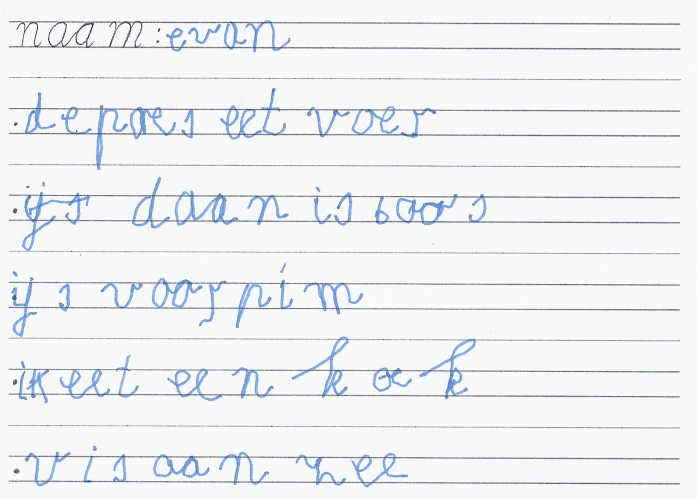 naam: evan
de poes eet voer
ijs daan is boos
ijs voor pim
ik eet een koek
vis aan zee